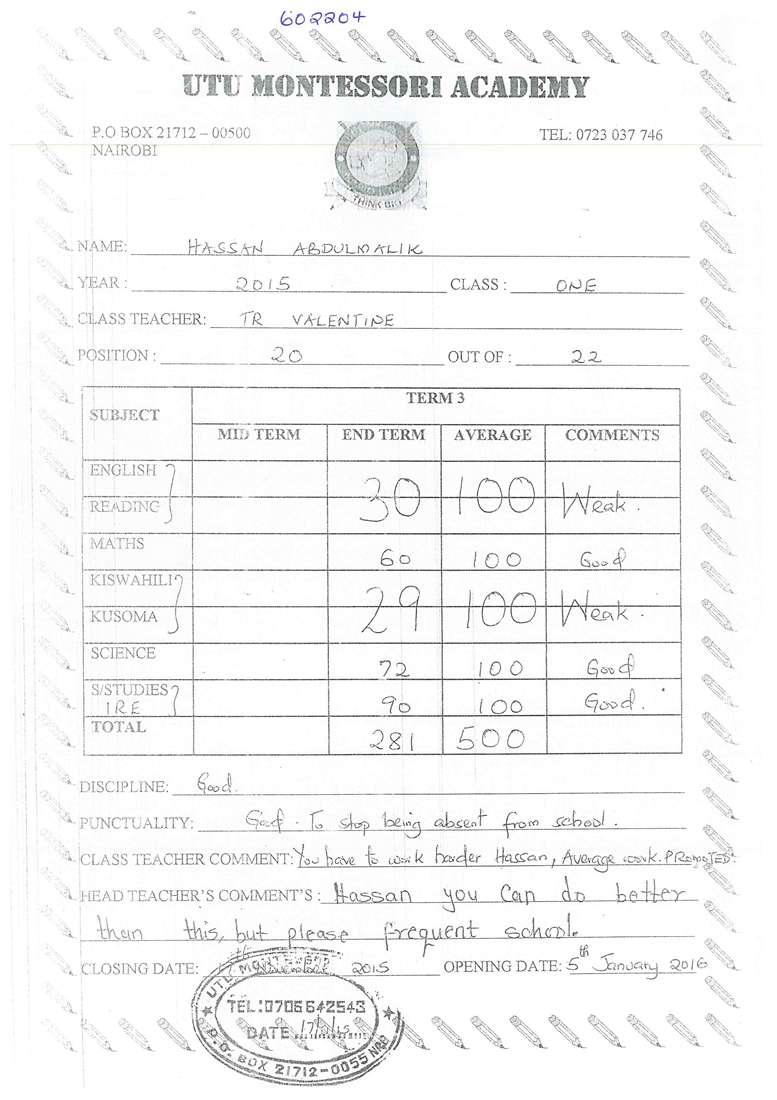 602204
UTU MONTESSORI ACADEMY
P.O BOX 21712 – 00500 TEL: 0723 037 746
NAIROBI
THINK BIG
NAME: HASSAN ABDULMALIK
YEAR : 2015 CLASS : ONE
CLASS TEACHER: TR VALENTINE
POSITION : 20 OUT OF : 22
SUBJECT TERM 3
MID TERM END TERM AVERAGE COMMENTS
ENGLISH
READING 30 100 Weak.
MATHS 60 100 Good
KISWAHILI
KUSOMA 29 100 Weak.
SCIENCE 72 100 Good
S/STUDIES
IRE 90 100 Good.
TOTAL 281 500
DISCIPLINE: Good.
PUNCTUALITY: Good. To stop being absent from school.
CLASS TEACHER COMMENT: You have to work harder Hassan, Average work. PROMOTED.
HEAD TEACHER'S COMMENT'S : Hassan you Can do better
than this, but please frequent school.
CLOSING DATE: November 2015 OPENING DATE: 5th January 2016
UTU MONTESSORI
TEL:0706642543
DATE 17/11/15
P.O. BOX 21712-0055 NRB